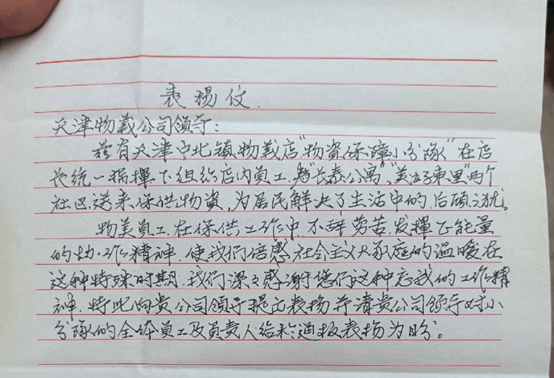 表揚仪
天津物美公司领导：
兹有天津中北镇物美店“物资保障小分隊”在店
长统一指揮下组织店内员工，为“长泰公寓”、“芙蓉東里”两个
社区送来保供物资，为居民解决了生活中的后顾之忧。
物美员工在保供工作中不辞劳苦发揮正能量
的协作精神，使我们倍感社会主义大家庭的温暖在
这种特殊时期，我们深深感谢您们这种忘我的工作精
神，特此向贵公司领导提出表扬并请贵公司领导对小
分隊的全体员工及负责人给于通报表扬为盼。